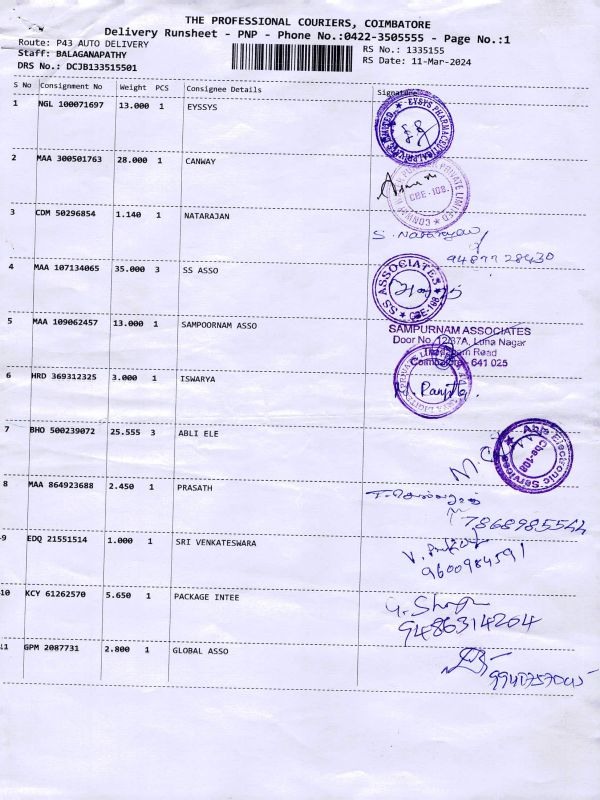 THE PROFESSIONAL COURIERS, COIMBATORE
Delivery Runsheet - PNP - Phone No.:0422-3505555 - Page No.:1
Route: P43 AUTO DELIVERY
Staff: BALAGANAPATHY
DRS No.: DCJB133515501
RS No.: 1335155
RS Date: 11-Mar-2024
S No Consignment No Weight PCS Consignee Details Signature
1 NGL 100071697 13.000 1 EYSSYS
EYSYS PHARMACEUTICAL PRIVATE LIMITED
2 MAA 300501763 28.000 1 CANWAY
PRIVATE LIMITED
CBE-108.
3 CDM 50296854 1.140 1 NATARAJAN
S. Natarajan
9487728430
4 MAA 107134065 35.000 3 SS ASSO
SS ASSOCIATES
CBE-108
5 MAA 109062457 13.000 1 SAMPOORNAM ASSO
SAMPURNAM ASSOCIATES
Door No. 12/37A, Luna Nagar
Road
Coimbatore - 641 025
6 HRD 369312325 3.000 1 ISWARYA
7 BHO 500239072 25.555 3 ABLI ELE
Able Electronic Services
Cbe-108
8 MAA 864923688 2.450 1 PRASATH
7868985544
9 EDQ 21551514 1.000 1 SRI VENKATESWARA
9600984591
10 KCY 61262570 5.650 1 PACKAGE INTEE
9486314204
11 GPM 2087731 2.800 1 GLOBAL ASSO